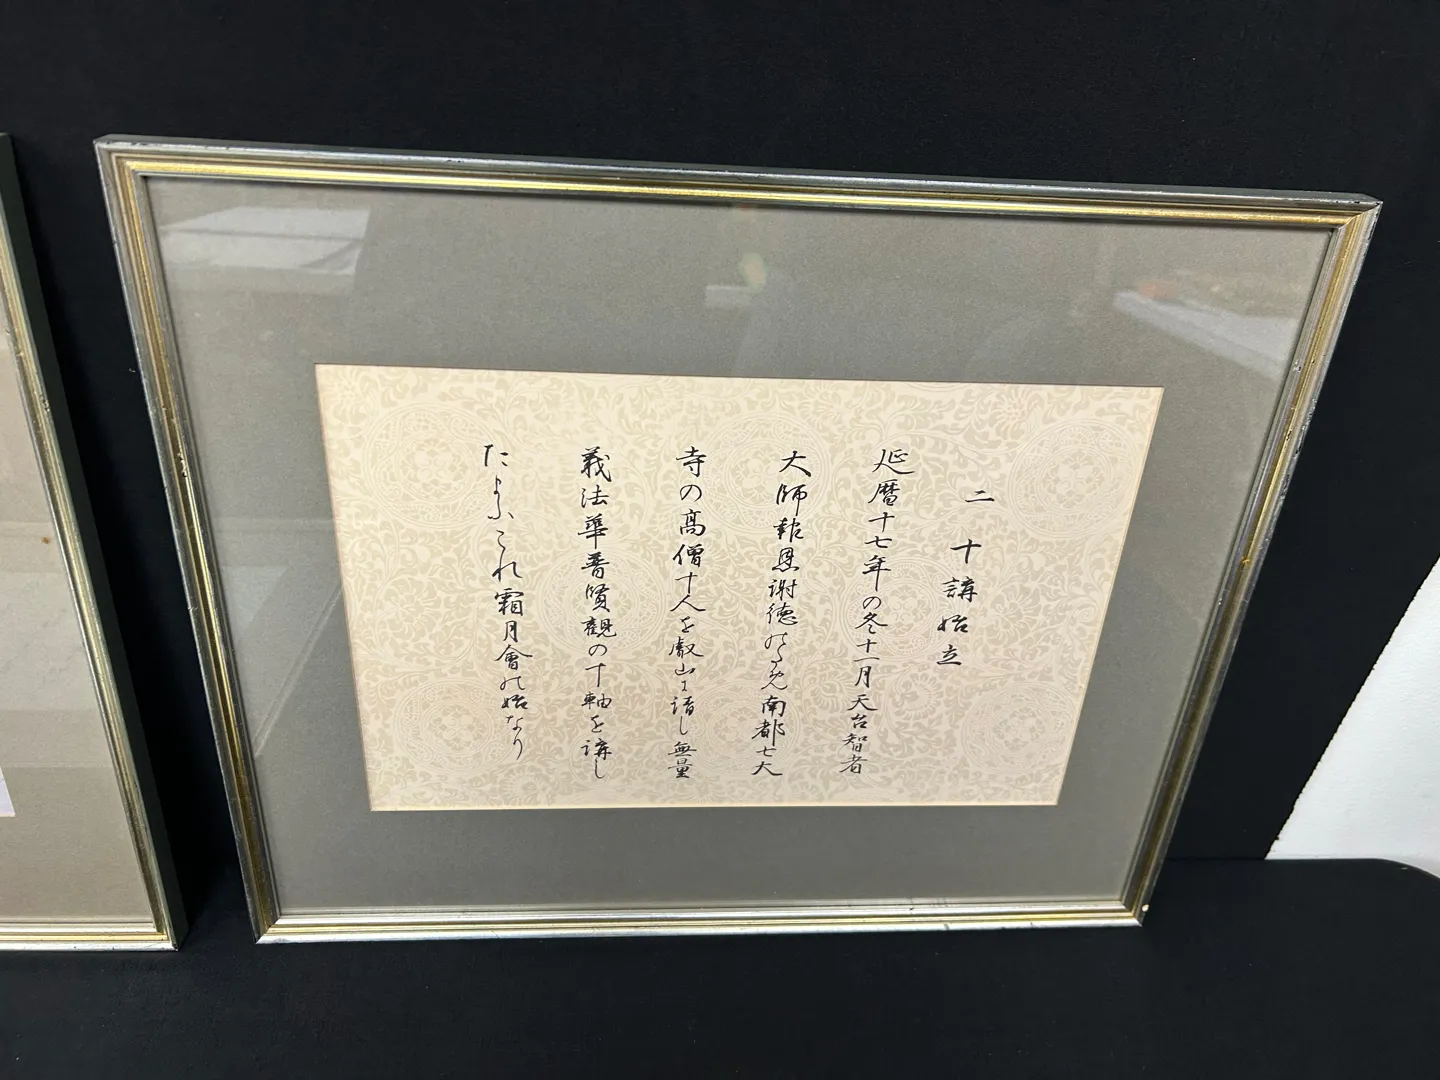 二十講始立
延暦十七年の冬十一月天台智者
大師報恩謝徳のため南都七大
寺の髙僧十人を叡山に請し無量
義法華普賢觀の十軸を講し
たまふこれ霜月會の始なり